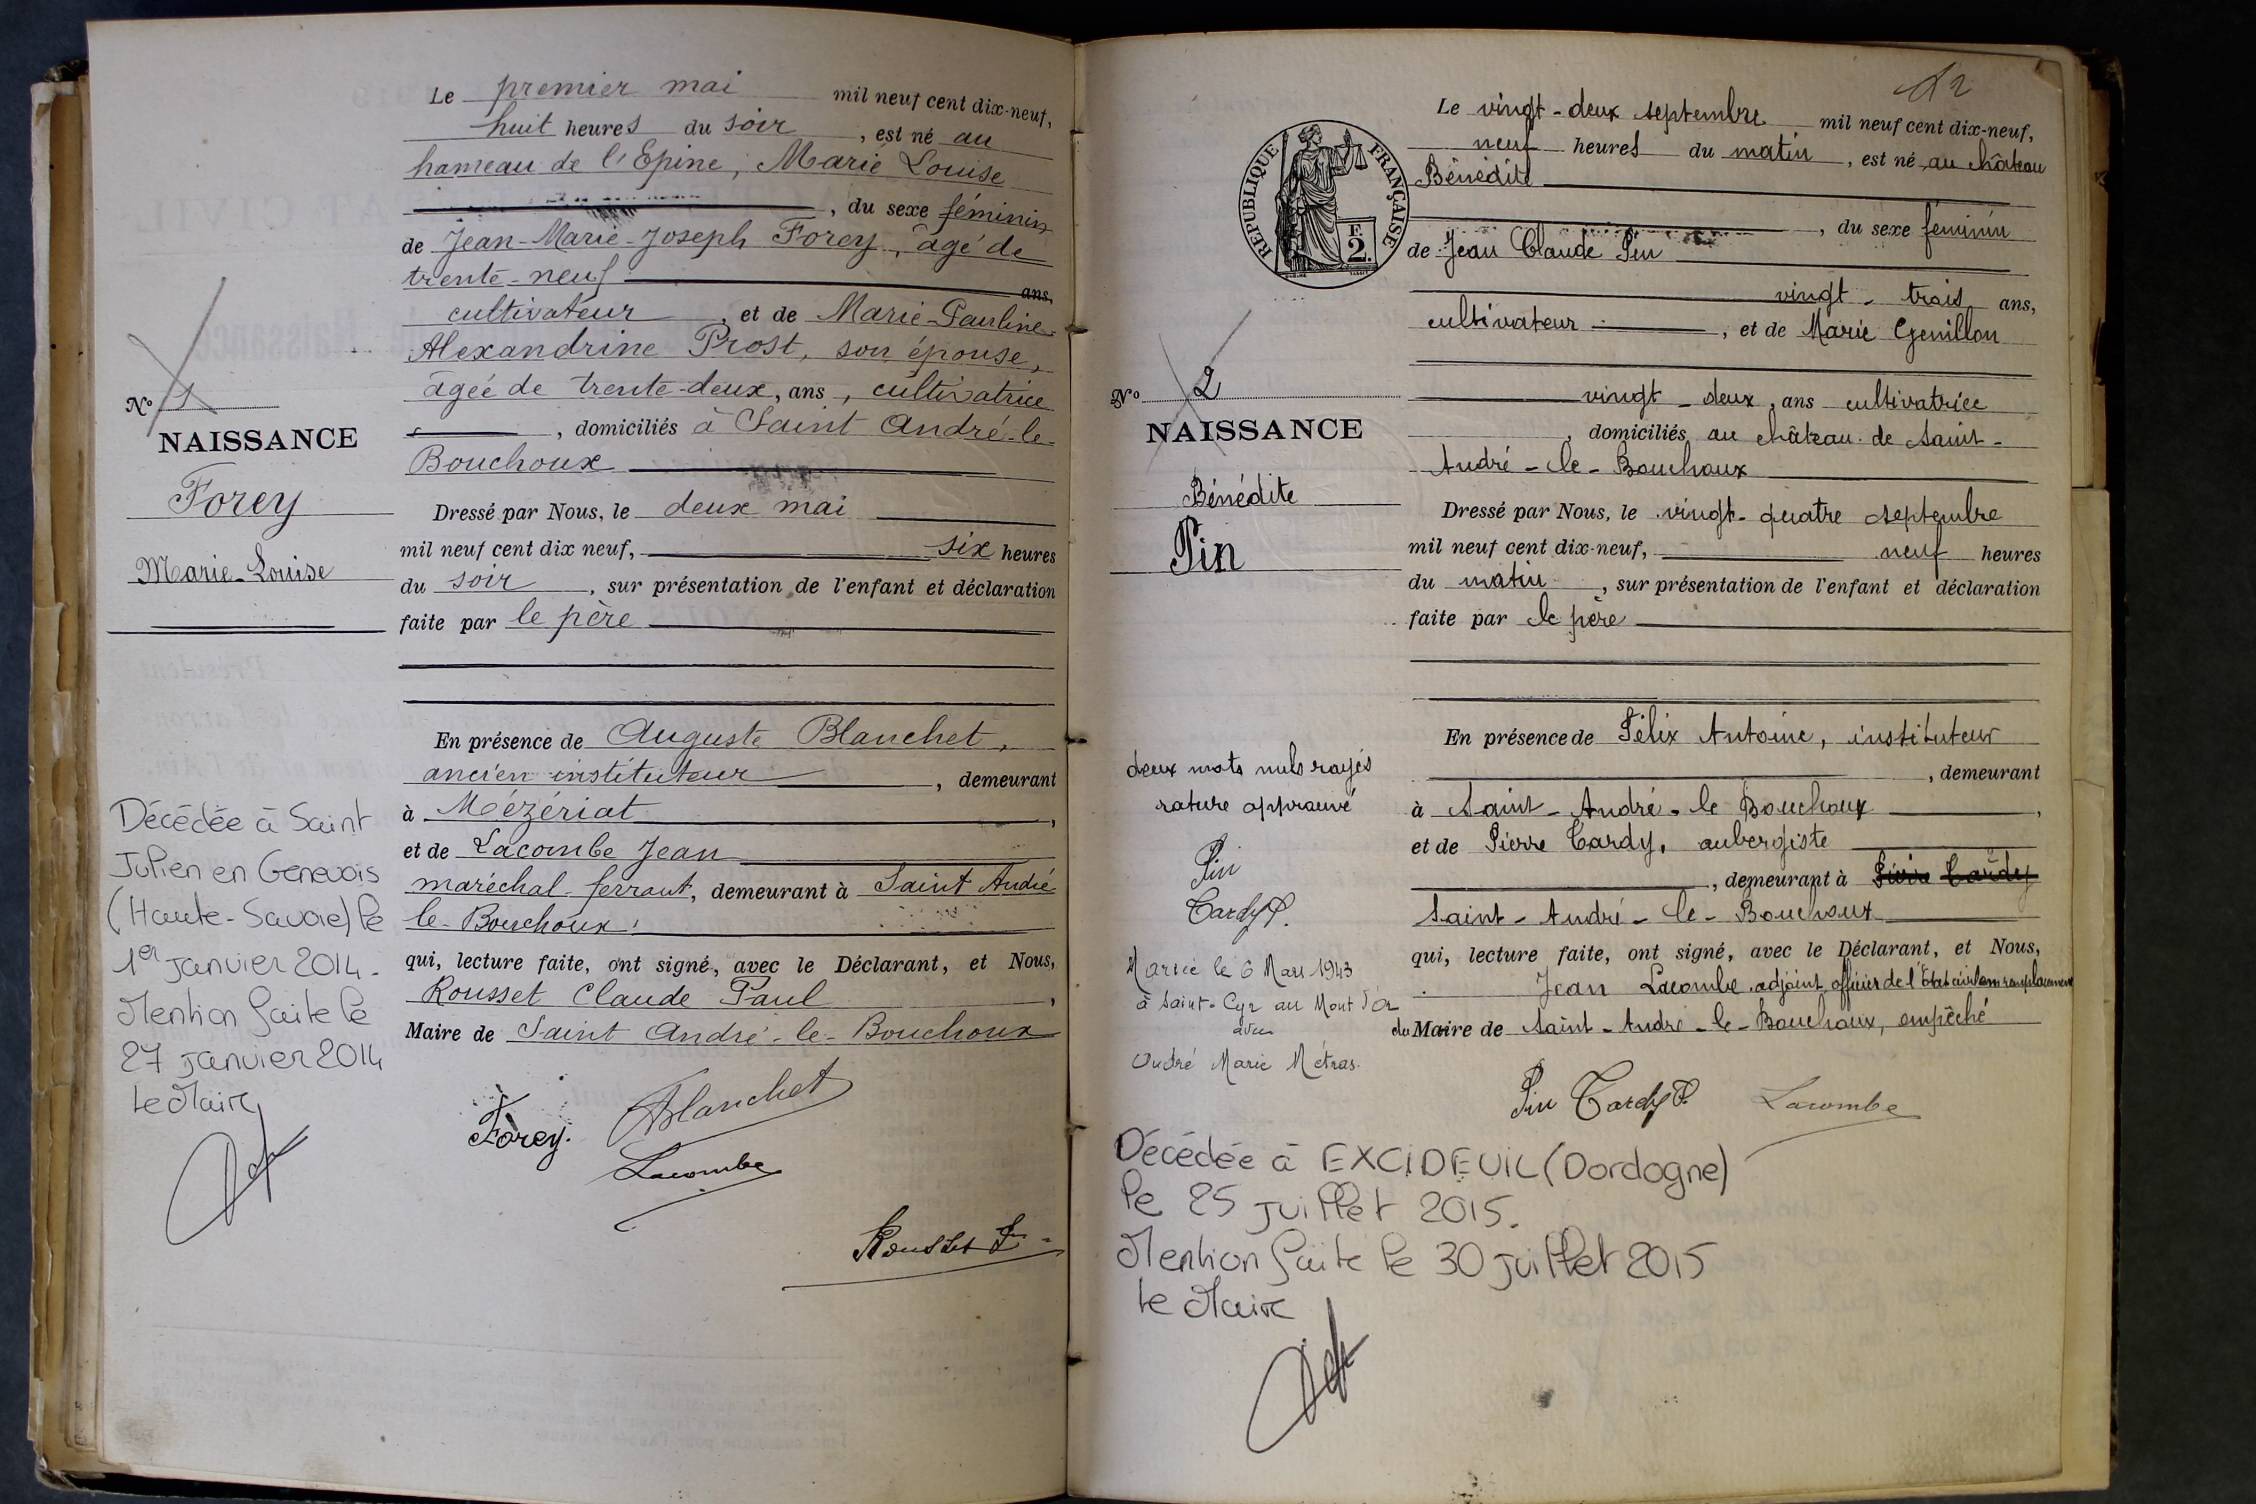 Le premier mai mil neuf cent dix-neuf,
huit heures du soir, est né au
hameau de l'Epine, Marie Louise
, du sexe féminin
de Jean-Marie-Joseph Forey, âgé de
trente-neuf ans,
cultivateur, et de Marie-Pauline-
Alexandrine Prost, son épouse,
âgée de trente-deux, ans, cultivatrice
, domiciliés à Saint André-le-
Bouchoux
Dressé par Nous, le deux mai
mil neuf cent dix neuf, six heures
du soir, sur présentation de l'enfant et déclaration
faite par le père
En présence de Auguste Blanchet,
ancien instituteur, demeurant
à Mézériat,
et de Lacombe Jean
maréchal-ferrant, demeurant à Saint André
le-Bouchoux
qui, lecture faite, ont signé, avec le Déclarant, et Nous,
Rousset Claude Paul,
Maire de Saint André-le-Bouchoux
Forey. Blanchet
Lacombe
Rousset
No 1
NAISSANCE
Forey
Marie-Louise
Décédée à Saint
Julien en Genevois
(Haute-Savoie) le
1er janvier 2014.
Mention faite le
27 janvier 2014
Le Maire
12
RÉPUBLIQUE FRANÇAISE
F.
2.
Le vingt-deux septembre mil neuf cent dix-neuf,
neuf heures du matin, est né au château
Bénédite
, du sexe féminin
de Jean Claude Pin
vingt-trois ans,
cultivateur, et de Marie Genillon
vingt-deux, ans cultivatrice
, domiciliés au château de Saint-
André-le-Bouchoux
Dressé par Nous, le vingt-quatre septembre
mil neuf cent dix-neuf, neuf heures
du matin, sur présentation de l'enfant et déclaration
faite par le père
En présence de Félix Antoine, instituteur
, demeurant
à Saint-André-le Bouchoux,
et de Pierre Cardy, aubergiste
, demeurant à Pierre Cardy
Saint-André-le-Bouchoux
qui, lecture faite, ont signé, avec le Déclarant, et Nous,
Jean Lacombe adjoint officier de l'Etat civil en remplacement
du Maire de Saint-André-le-Bouchoux, empêché
Pin Cardy P. Lacombe
No 2
NAISSANCE
Bénédite
Pin
deux mots nuls rayés
rature approuvé
Pin
Cardy P.
Mariée le 6 Mars 1943
à Saint-Cyr au Mont d'Or
avec
André Marie Métras.
Décédée à EXCIDEUIL (Dordogne)
le 25 juillet 2015.
Mention faite le 30 juillet 2015
Le Maire